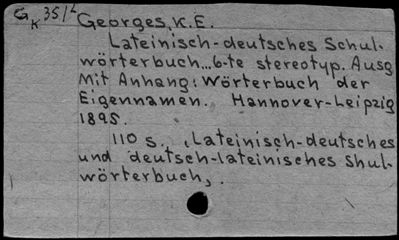 GK 35/2 Georges, K.E.
Lateinisch-deutsches Schul-
wörterbuch...6-te stereotyp. Ausg
Mit Anhang: Wörterbuch der
Eigennamen. Hannover-Leipzig
1895.
110 s. „Lateinisch-deutsches
und deutsch-lateinisches Shul-
wörterbuch„.